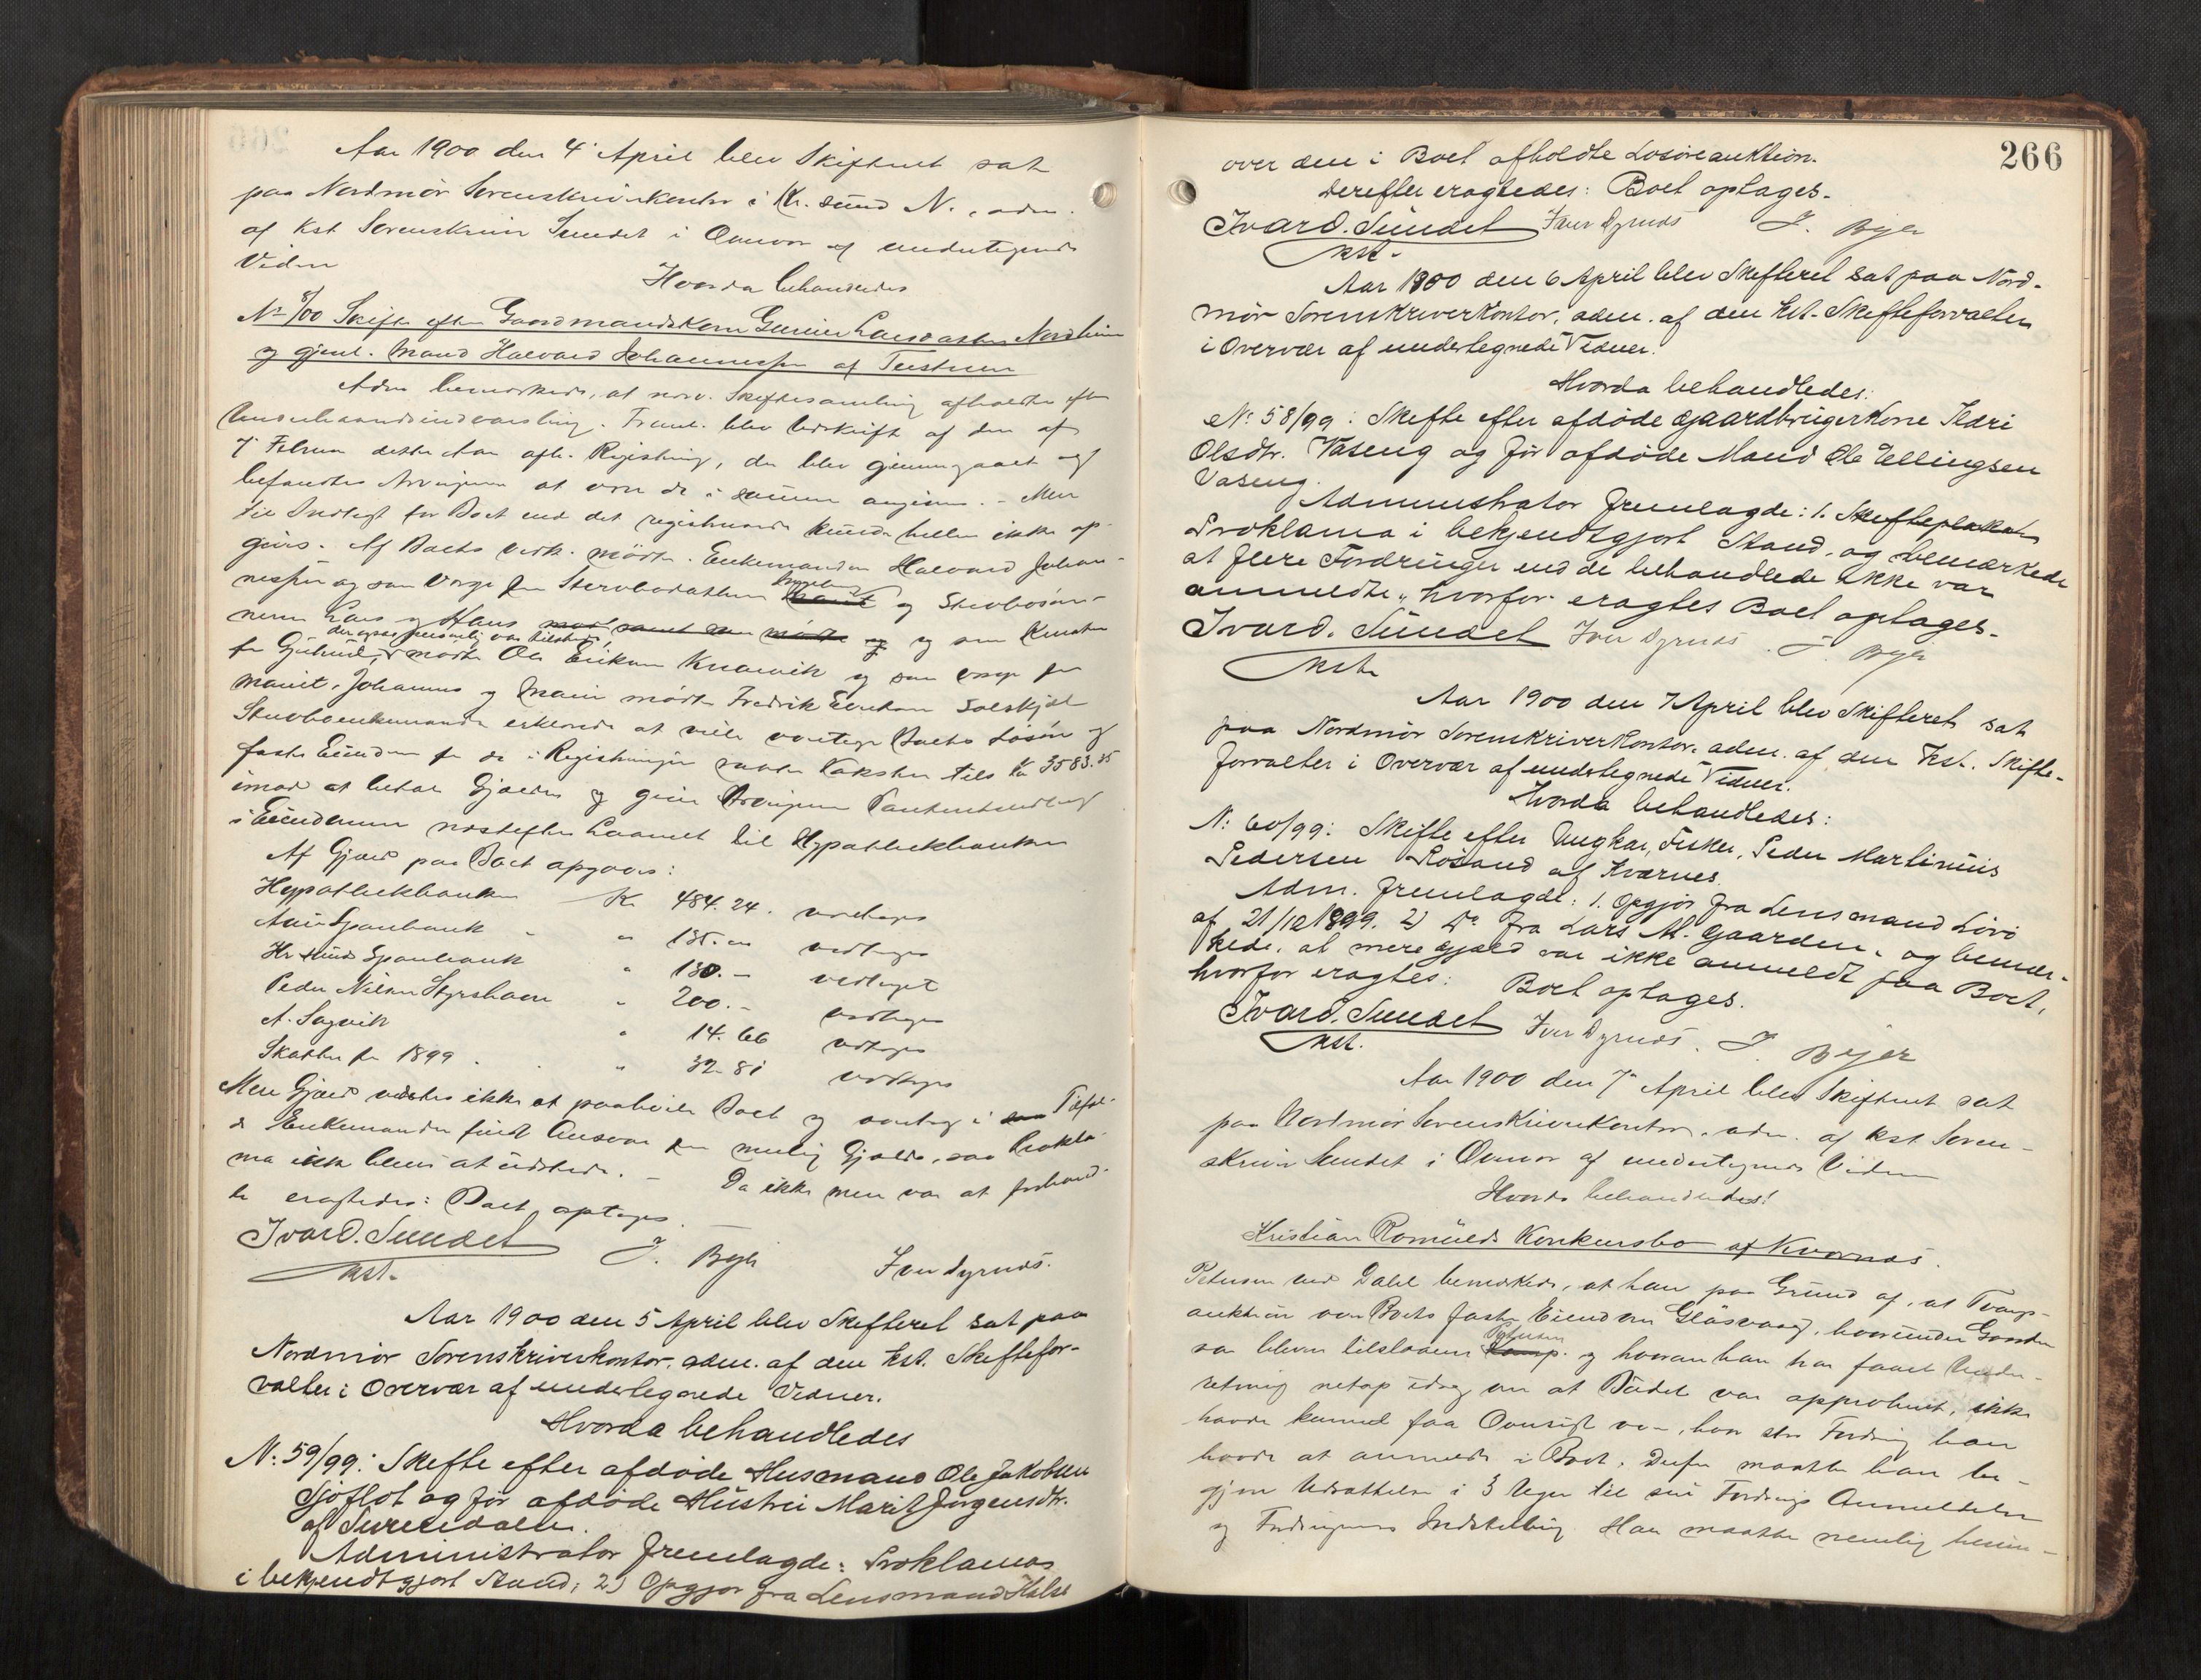 Aar 1900 den 4' April blev Skifteret sat
paa Nordmør Sorenskriverkontor i Kr. sund N., adm.
af Kst Sorenskriver Sundet i Overvær af undertegnede
Vidner
Hvorda behandledes
No 8/00 Skifte efter Gaardmandskone Larsdatter Nordheim
og gjenl. Mand Halvard Johannessen af Tustern
Adm bemærkede, at nærv. Skiftesamling afholdtes efter
Underhaandsindvarsling. Freml. blev Udskrift af den af
7' Februar dette Aar afh. Registrering, der blev gjennemgaaet og
befandtes Arvingerne at være de i samme angivne. - Mere
til Indtægt for Boet end det registrerede kunde heller ikke op-
gives. Af Boets Vedk. mødte Enkemanden Halvard Johan-
nessen og som Værge for Stervbodatteren og Stervbosøn-
nerne Lars og Hans og som Kurator
der ogsaa personlig var tilstede,
for Gjertrud, mødte Ole Eriksen Knarvik og som Værge for
Marit, Johannes og Marie mødte Fredrik Solskjel
Stervboenkemanden erklærede at ville overtage Boets Løsøre og
faste Eiendom for de i Registreringen satte Takster tils Kr 3583.35
imod at betale Gjælden og give Arvingerne Panteudlæg
i Eiendommen næstefter Laanet til Hypothekbanken
Af Gjæld paa Boet opgaves:
Hypothekbanken Kr 484. 24. vedtages
Aure Sparebank " " 135.- vedtages
Kr sunds Sparebank " 130.- vedtaget
Peder Nilsen " 200.- vedtages
A. Sagvik " 14. 66 vedtages
Skatter for 1899 . . " 32. 81 vedtages
Mere Gjæld vidstes ikke at paahvile Boet og overtog i Tilfæl-
de Enkemanden fuldt Ansvar for mulig Gjæld, saa Prokla-
ma ikke blev at udstede. - Da ikke mere var at forhand-
le eragtedes: Boet optages. -
Ivar O. Sundet J. Bejer Iver Dyrnes.
kst.
Aar 1900 den 5 April blev Skifteret sat paa
Nordmør Sorenskriverkontor, adm. af den kst. Skiftefor-
valter i Overvær af undertegnede Vidner.
Hvorda behandledes
N: 59/99: Skifte efter afdøde Husmand Ole Jakobsen
Sjøflot og før afdøde Hustru Marit Jørgensdtr.
af Surendalen.
Administrator fremlagde: Proklamas
i bekjendtgjort Stand; 2) Opgjør fra Lensmand Halse
266
over den i Boet afholdte Løsøreauktion.
Derefter eragtedes: Boet optages.
Ivar O. Sundet Iver Dyrnes J. Bejer
kst.
Aar 1900 den 6 April blev Skifteret sat paa Nord-
mør Sorenskriverkontor, adm. af den kst. Skifteforvalter
i Overvær af undertegnede Vidner.
Hvorda behandledes:
N: 58/99: Skifte efter afdøde Gaardbrugerkone Sedri
Olsdtr. Vaseng og før afdøde Mand Ole Ellingsen
Vaseng.
Administrator fremlagde: 1. Skifteplakat
Proklama i bekjendtgjort Stand, og bemærkede
at flere Fordringer end de behandlede ikke var
anmeldte, hvorfor eragtes Boet optages.
Ivar O. Sundet Iver Dyrnes. J. Bejer
kst.
Aar 1900 den 7 April blev Skifteret sat
paa Nordmør Sorenskriverkontor, adm. af den kst. Skifte-
forvalter i Overvær af undertegnede Vidner.
Hvorda behandledes:
N: 60/99: Skifte efter Ungkar, Fisker, Peder Martinius
Pedersen Røsand af Kvernes.
Adm. fremlagde: 1. Opgjør fra Lensmand Løvø
af 21/12 1899. 2) Do fra Lars M. Gaarden, og bemær-
kede, at mere Gjæld var ikke anmeldt paa Boet,
hvorfor eragtes: Boet optages.
Ivar O. Sundet Iver Dyrnes. J. Bejer
kst.
Aar 1900 den 7' April blev Skifteret sat
paa Nordmør Sorenskriverkontor, adm. af kst Soren-
skriver Sundet i Overvær af undertegnede Vidner
Hvorda behandledes:
Kristian Romulds Konkursbo af Kvernes.
Petersen ved Dahl bemærkede, at han paa Grund af, at Tvangs-
auktion over Boets faste Eiendom Glasvaag, hvorunder Gaarden
Petersen
sa bleven tilslaaet og hvoran han har faaet Under-
retning netop idag om at Budet var approberet, ikke
havde kunnet faa Oversigt over, hvor stor Fordring han
havde at anmelde i Boet. Derfor maatte han be-
gjære Udsættelse i 3 Uger til sin Fordrings Anmeldelse
og Fordringernes Indstilling. Han maatte nemlig